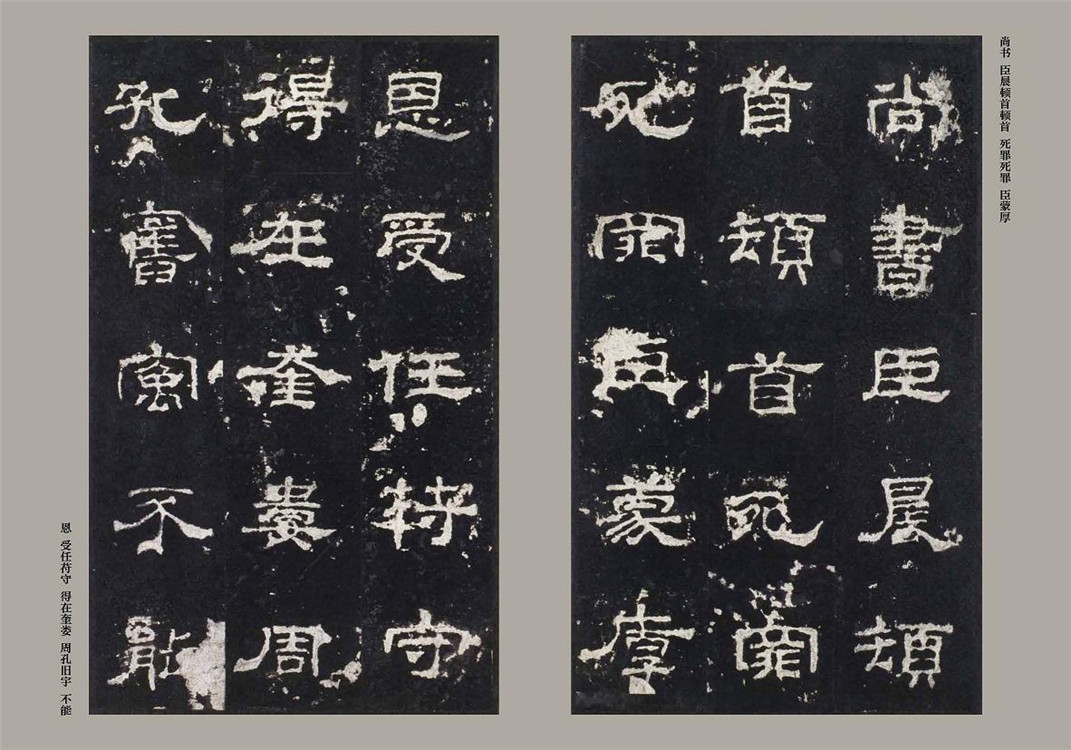 尚书 臣晨顿首顿首 死罪死罪 臣蒙厚
尚書臣晨頓
首頓首死罪
死罪臣蒙厚
恩受任符守
得在奎婁周
孔舊寓不能
恩 受任苻守 得在奎娄 周孔旧宇 不能